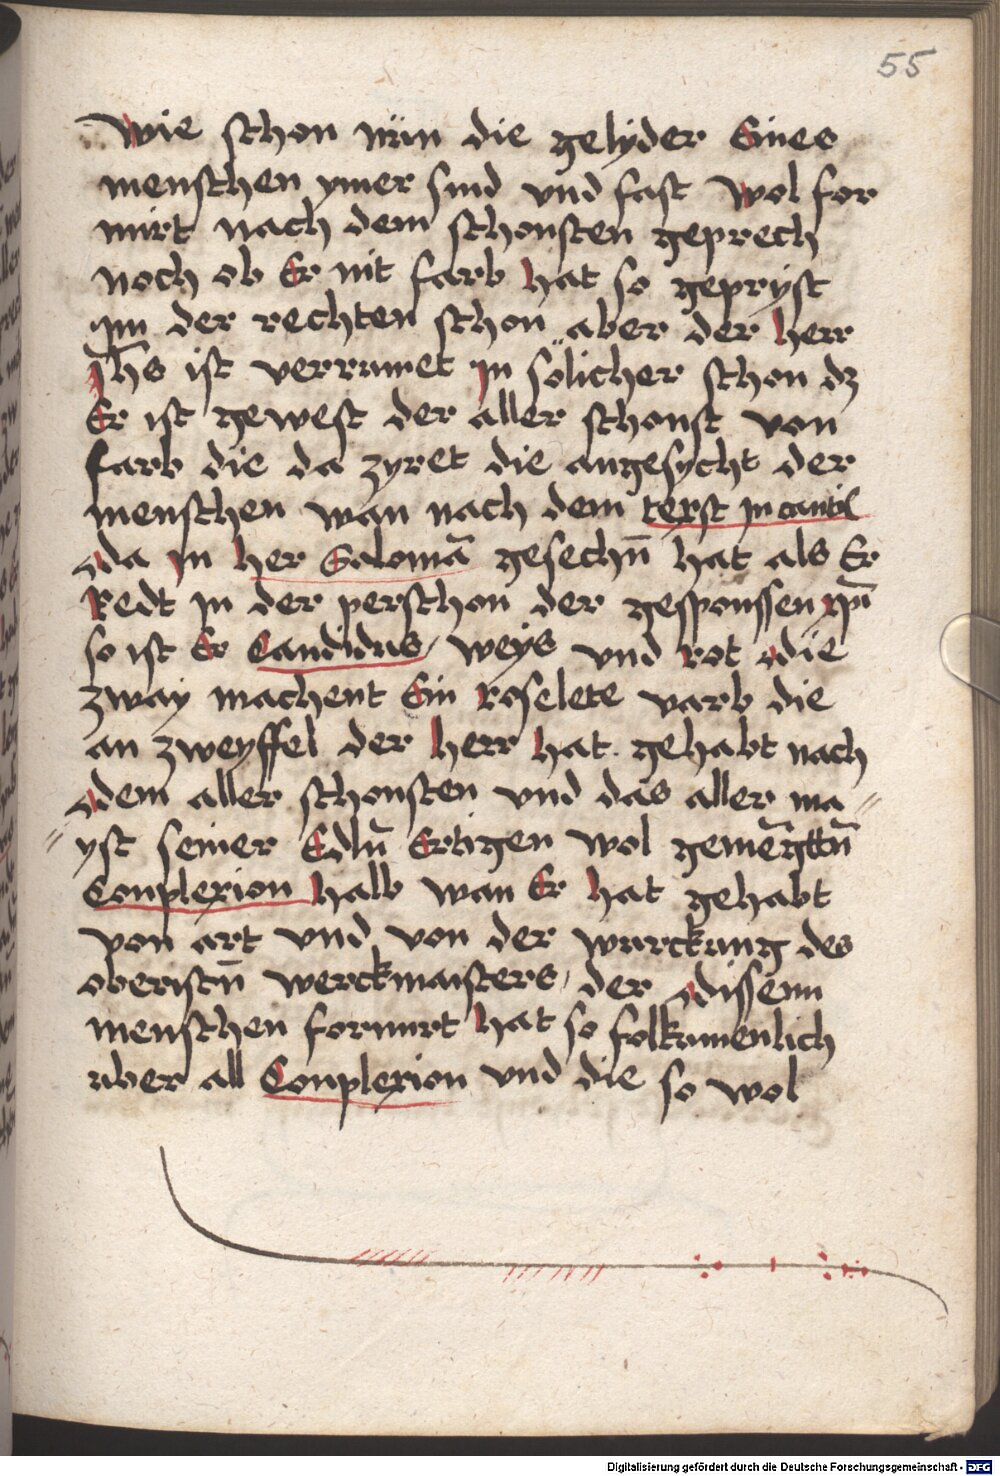 55
Wie schon nün die gelyder Eines
menschen ymer sind vnd fast wol for
mirt nach dem schonsten geprech
noch ob Er nit farb hat so gepryst
im der rechten schon aber der herr
Jhs ist verrumet in sölicher schon dz
Er ist gewest der aller schonst von
farb die da zyret die angesycht der
menschen wan nach dem text in cantic
da in her Salomā gesechn̄ hat als Er
Redt in der perschon der gesponssen xpī
so ist Er Candidus / weys vnd rot die
zway machent Ein roselete varb die
an zweyffel der herr hat gehabt nach
dem aller schonsten vnd das aller ma //
// yst seiner Edln̄ Ertigen wol gemēgttn̄
Conplexion halb wan Er hat gehabt
von art vnd von der wurckung des
oberistn̄ werckmaisters / der dissenn
menschen formirt hat so folkumenlich
uber all Conplexion vnd die so wol
Digitalisierung gefördert durch die Deutsche Forschungsgemeinschaft - DFG